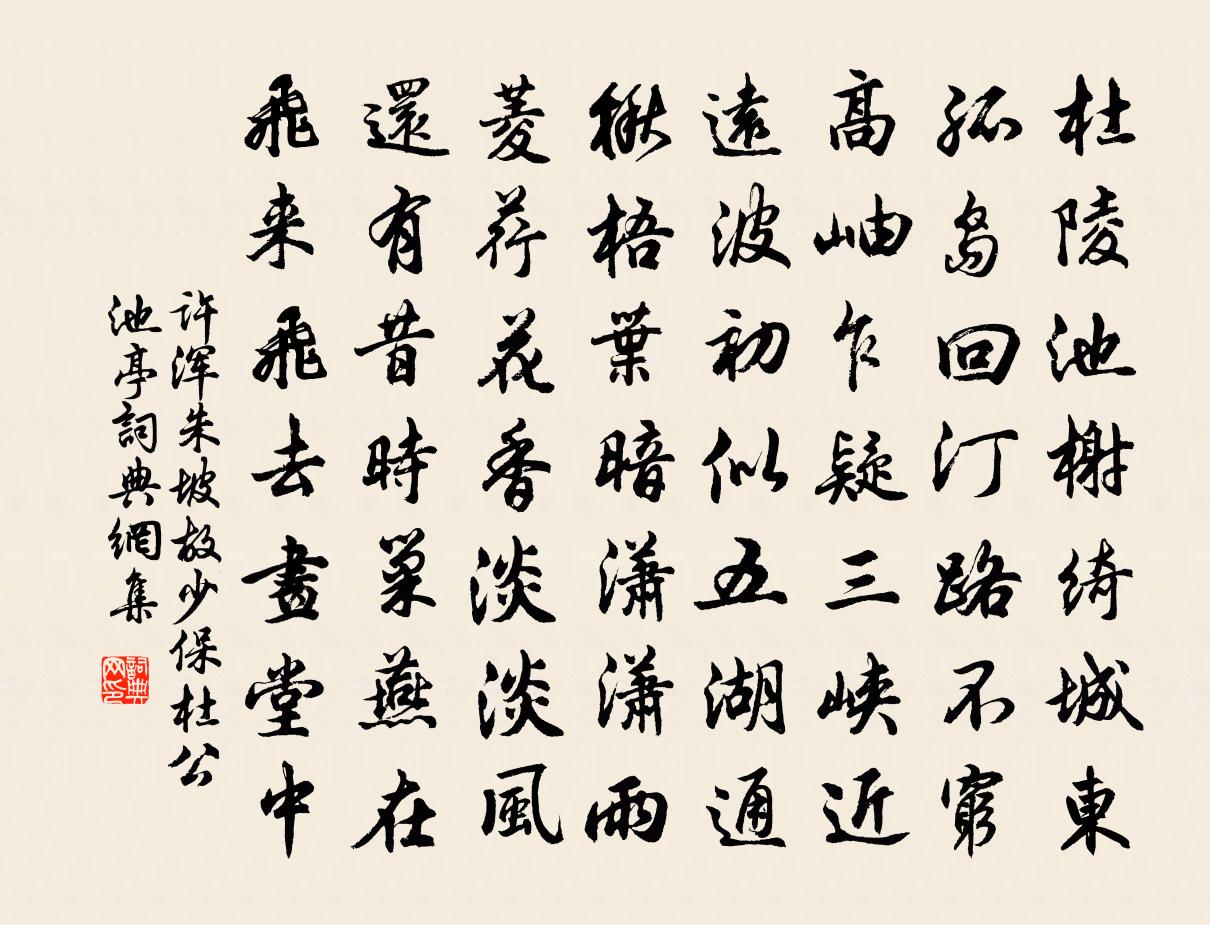 杜陵池榭綺城東
孤島回汀路不窮
高岫乍疑三峽近
遠波初似五湖通
楸梧葉暗瀟瀟雨
菱荇花香淡淡風
還有昔時巢燕在
飛来飛去畫堂中
許渾朱坡故少保杜公
池亭詞典網集
詞典
网印